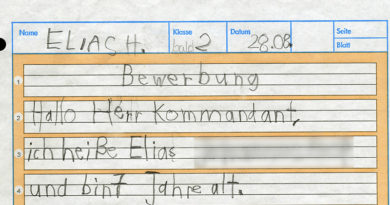 Name ELIAS H. Klasse bald 2 Datum 28.08. Seite
Blatt
1 Bewerbung
2 Hallo Herr Kommandant,
3 ich heiße Elias
4 und bin 7 Jahre alt.